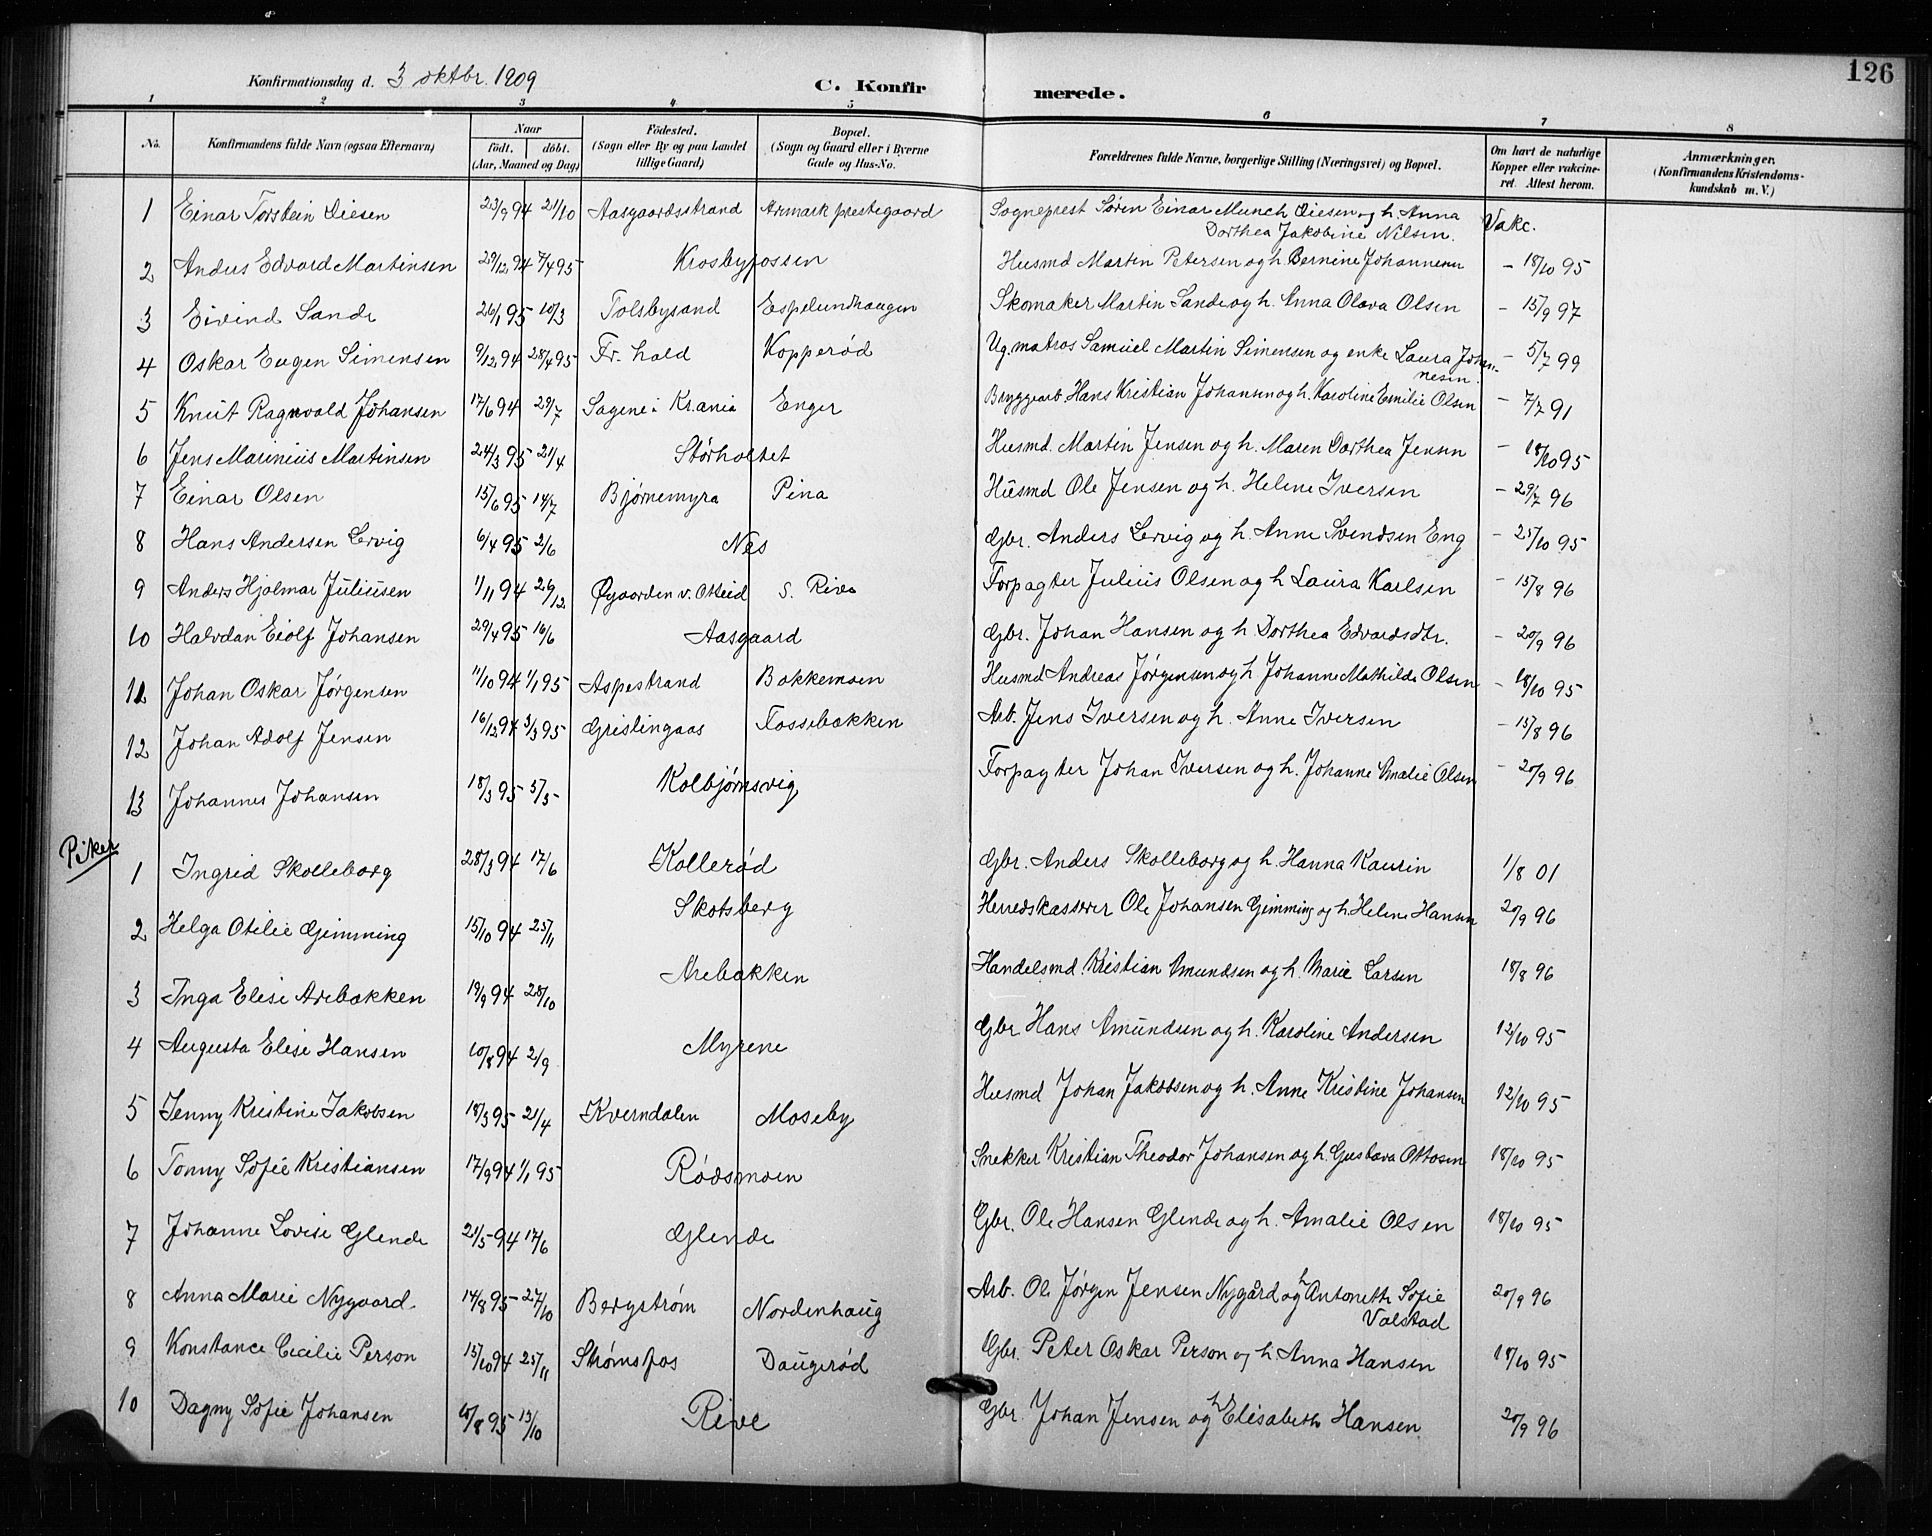 126
Konfirmationsdag d. 3 oktbr. 1909 C. Konfir merede.
1 2 3 4 5 6 7 8
No. Konfirmandens fulde Navn (ogsaa Efternavn) Naar födt. döbt. (Aar, Maaned og Dag) Födested. (Sogn eller By og paa Landet tillige Gaard) Bopæl. (Sogn og Gaard eller i Byerne Gade og Hus-No. Forældrenes fulde Navne, borgerlige Stilling (Næringsvei) og Bopæl. Om havt de naturlige Kopper eller vakcineret. Attest herom. Anmærkninger. (Konfirmandens Kristendomskundskab m. V.)
1 Einar Torstein Diesen 23/9 94 21/10 Aasgaardsstrand Aremark prestegaard Sogneprest Søren Einar Munch Diesen og h. Anna Vakc.
Dorthea Jakobine Nilsen.
2 Anders Edvard Martinsen 29/12 94 7/4 95 Krosbyfossen Husmd Martin Petersen og h. Bernine Johannesen - 18/10 95
3 Eivind Sande 26/1 95 10/3 Tolsbysand Espelundhaugen Skomaker Martin Sande og h. Anna Olava Olsen - 15/9 97
4 Oskar Eugen Simensen 9/12 94 28/4 95 Fr. hald Kopperød Ug. matros Samuel Martin Simensen og enke Laura Johan- - 5/7 99
nesen.
5 Knut Ragnvald Johansen 17/6 94 29/7 Sagene i Kr.ania Enger Bryggearb. Hans Kristian Johansen og h. Karoline Emilie Olsen - 7/7 91
6 Jens Marinius Martinsen 24/3 95 21/4 Størholtet Husmd. Martin Jensen og h. Maren Dorthea Jensen - 18/10 95
7 Einar Olsen 15/6 95 14/7 Bjørnemyra Pina Husmd Ole Jensen og h. Helene Iversen - 29/7 96
8 Hans Andersen Lervig 6/4 95 2/6 Nes Gbr. Anders Lervig og h. Anne Svendsen Eng - 25/10 95
9 Anders Hjalmar Juliusen 1/11 94 26/12 Øgaarden v. Otteid S. Rive Forpagter Julius Olsen og h Laura Karlsen - 15/8 96
10 Halvdan Eiolf Johansen 29/4 95 16/6 Aasgaard Gbr. Johan Hansen og h. Dorthea Edvardsdtr. - 20/9 96
11 Johan Oskar Jørgensen 11/10 94 1/1 95 Aspestrand Bakkemoen Husmd Andreas Jørgensen og h Johanne Mathilde Olsen - 18/10 95
12 Johan Adolf Jensen 16/12 94 3/3 95 Gristingaas Fossebakken Arb. Jens Iversen og h. Anne Iversen - 15/8 96
13 Johannes Johansen 18/3 95 5/5 Kolbjørnsvig Forpagter Johan Iversen og h. Johanne Amalie Olsen - 20/9 96
Piker
1 Ingrid Skolleborg 28/3 94 17/6 Kollerød Gbr. Anders Skolleborg og h. Hanna Kaurin 1/8 01
2 Helga Otilie Gimming 15/10 94 25/11 Skotsberg Herredskasserer Ole Johansen Gimming og h. Helene Hansen 20/9 96
3 Inga Elise Arebakken 19/9 94 28/10 Arebakken Handelsmd. Kristian Amundsen og h. Marie Larsen 18/8 96
4 Augusta Elise Hansen 10/8 94 2/9 Myrene Gbr. Hans Amundsen og h. Karoline Andersen 12/10 95
5 Jenny Kristine Jakobsen 18/3 95 21/4 Kverndalen Moseby Husmd Johan Jakobsen og h. Anne Kristine Johansen 12/10 95
6 Tonny Sofie Kristiansen 17/9 94 1/1 95 Rødsmoen Snekker Kristian Theodor Johansen og h. Gustava Ottosen 18/10 95
7 Johanne Lovise Glende 21/5 94 17/6 Glende Gbr. Ole Hansen Glende og h. Amalie Olsen 18/10 95
8 Anna Marie Nygaard 14/8 95 27/10 Bergstrøm Nordenhaug Arb. Ole Jørgen Jensen Nygård og h Antonette Sofie 20/9 96
Valstad
9 Konstance Cecilie Person 15/10 94 25/11 Strømsfos Daugerød Gbr. Peter Oskar Person og h. Anna Hansen 18/10 95
10 Dagny Sofie Johansen 10/8 95 13/10 Rive Gbr. Johan Jensen og h Elisabeth Hansen 20/9 96